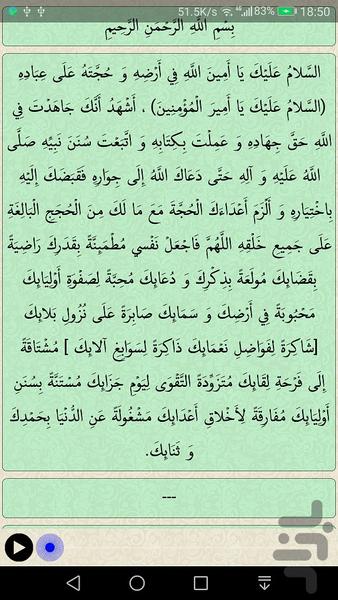 51.5K/s 4G 83% 18:50
بِسْمِ اللَّهِ الرَّحْمَنِ الرَّحِيمِ
السَّلامُ عَلَيْكَ يَا أَمِينَ اللَّهِ فِي أَرْضِهِ وَ حُجَّتَهُ عَلَى عِبَادِهِ
(السَّلامُ عَلَيْكَ يَا أَمِيرَ الْمُؤْمِنِينَ) ، أَشْهَدُ أَنَّكَ جَاهَدْتَ فِي
اللَّهِ حَقَّ جِهَادِهِ وَ عَمِلْتَ بِكِتَابِهِ وَ اتَّبَعْتَ سُنَنَ نَبِيِّهِ صَلَّى
اللَّهُ عَلَيْهِ وَ آلِهِ حَتَّى دَعَاكَ اللَّهُ إِلَى جِوَارِهِ فَقَبَضَكَ إِلَيْهِ
بِاخْتِيَارِهِ وَ أَلْزَمَ أَعْدَاءَكَ الْحُجَّةَ مَعَ مَا لَكَ مِنَ الْحُجَجِ الْبَالِغَةِ
عَلَى جَمِيعِ خَلْقِهِ اللَّهُمَّ فَاجْعَلْ نَفْسِي مُطْمَئِنَّةً بِقَدَرِكَ رَاضِيَةً
بِقَضَايِكَ مُولَعَةً بِذِكْرِكَ وَ دُعَايِكَ مُحِبَّةً لِصَفْوَةِ أَوْلِيَايِكَ
مَحْبُوبَةً فِي أَرْضِكَ وَ سَمَايِكَ صَابِرَةً عَلَى نُزُولِ بَلايِكَ
[شَاكِرَةً لِفَوَاضِلِ نَعْمَايِكَ ذَاكِرَةً لِسَوَابِغِ آلايِكَ ] مُشْتَاقَةً
إِلَى فَرْحَةِ لِقَايِكَ مُتَزَوِّدَةً التَّقْوَى لِيَوْمِ جَزَايِكَ مُسْتَنَّةً بِسُنَنِ
أَوْلِيَايِكَ مُفَارِقَةً لِأَخْلاقِ أَعْدَايِكَ مَشْغُولَةً عَنِ الدُّنْيَا بِحَمْدِكَ
وَ ثَنَايِكَ.
---